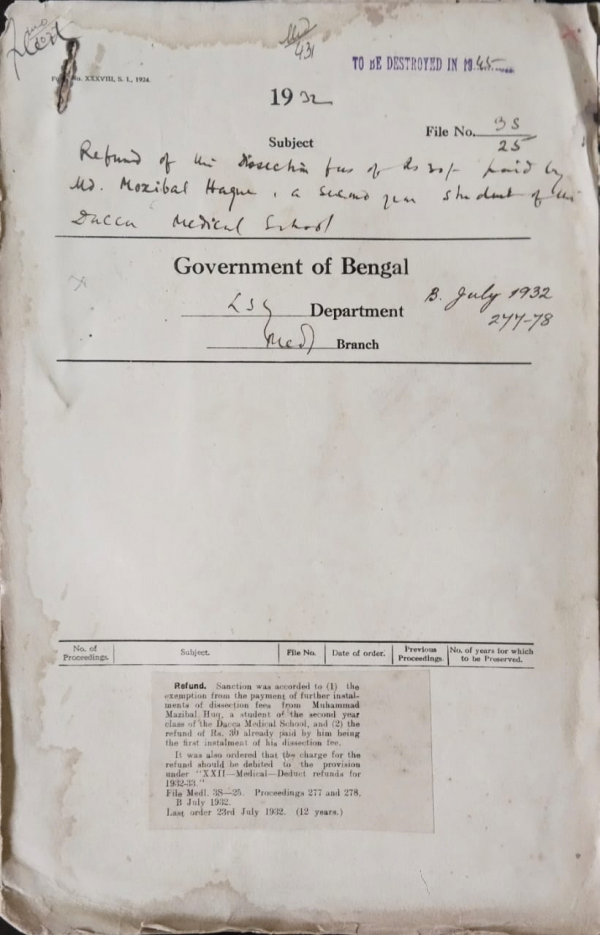 431
TO BE DESTROYED IN 1945
No. XXXVIII, S. I., 1924.
1932
File No. 3S/25
Subject
Refund of the Dissection fees of Rs 30/- paid by
Md. Mozibal Haque, a second year student of the
Dacca Medical School
Government of Bengal
LSG Department
B. July 1932
277-78
Med Branch
No. of Proceedings. Subject. File No. Date of order. Previous Proceedings. No. of years for which to be Preserved.
Refund. Sanction was accorded to (1) the
exemption from the payment of further instal-
ments of dissection fees from Muhammad
Mazibal Huq, a student of the second year
class of the Dacca Medical School, and (2) the
refund of Rs. 30 already paid by him being
the first instalment of his dissection fee.
It was also ordered that the charge for the
refund should be debited to the provision
under "XXII—Medical—Deduct refunds for
1932-33."
File Medl. 3S—25. Proceedings 277 and 278,
B July 1932.
Last order 23rd July 1932. (12 years.)